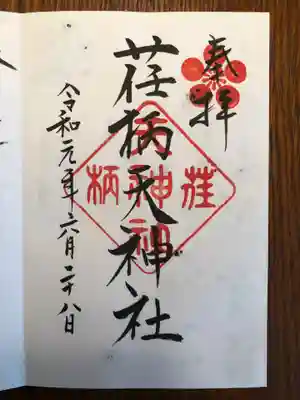 奉拝
荏柄天神社
令和元年六月二十八日
荏柄
天神社